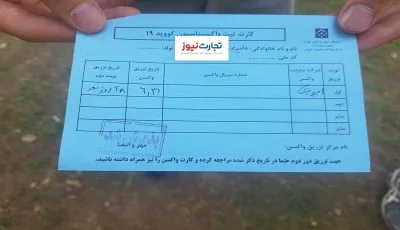 کارت ثبت واکسیناسیون کووید ۱۹
تجارت‌نیوز
نام و نام خانوادگی:
کد ملی:
نوبت تزریق
شرکت سازنده واکسن
شماره سریال واکسن
تاریخ تزریق واکسن
تاریخ تزریق نوبت دوم
اول
۶,۳۱
۲۸ روز بعد
دوم
سایر
سایر
نام مرکز تزریق واکسن:
مهر و امضا
جهت تزریق دوز دوم حتما در تاریخ ذکر شده مراجعه کرده و کارت واکسن را نیز همراه داشته باشید.